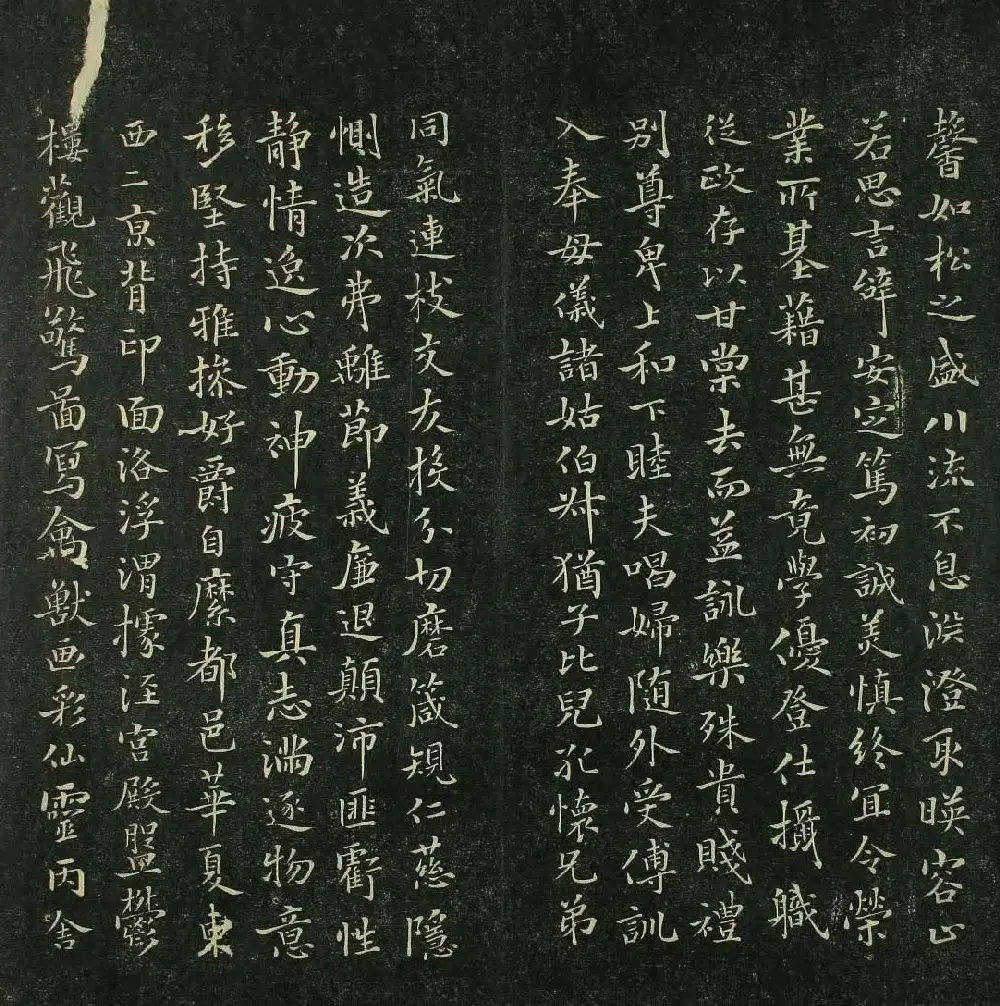 馨如松之盛川流不息淵澄取暎容止
若思言辭安定篤初誠美慎終宜令榮
業所基藉甚無竟學優登仕攝職
從政存以甘棠去而益詠樂殊貴賤禮
別尊卑上和下睦夫唱婦隨外受傅訓
入奉母儀諸姑伯叔猶子比兒孔懷兄弟
同氣連枝交友投分切磨箴規仁慈隱
惻造次弗離節義廉退顛沛匪虧性
靜情逸心動神疲守真志滿逐物意
移堅持雅操好爵自縻都邑華夏東
西二京背邙面洛浮渭據涇宮殿盤鬱
樓觀飛驚圖寫禽獸画彩仙靈丙舍